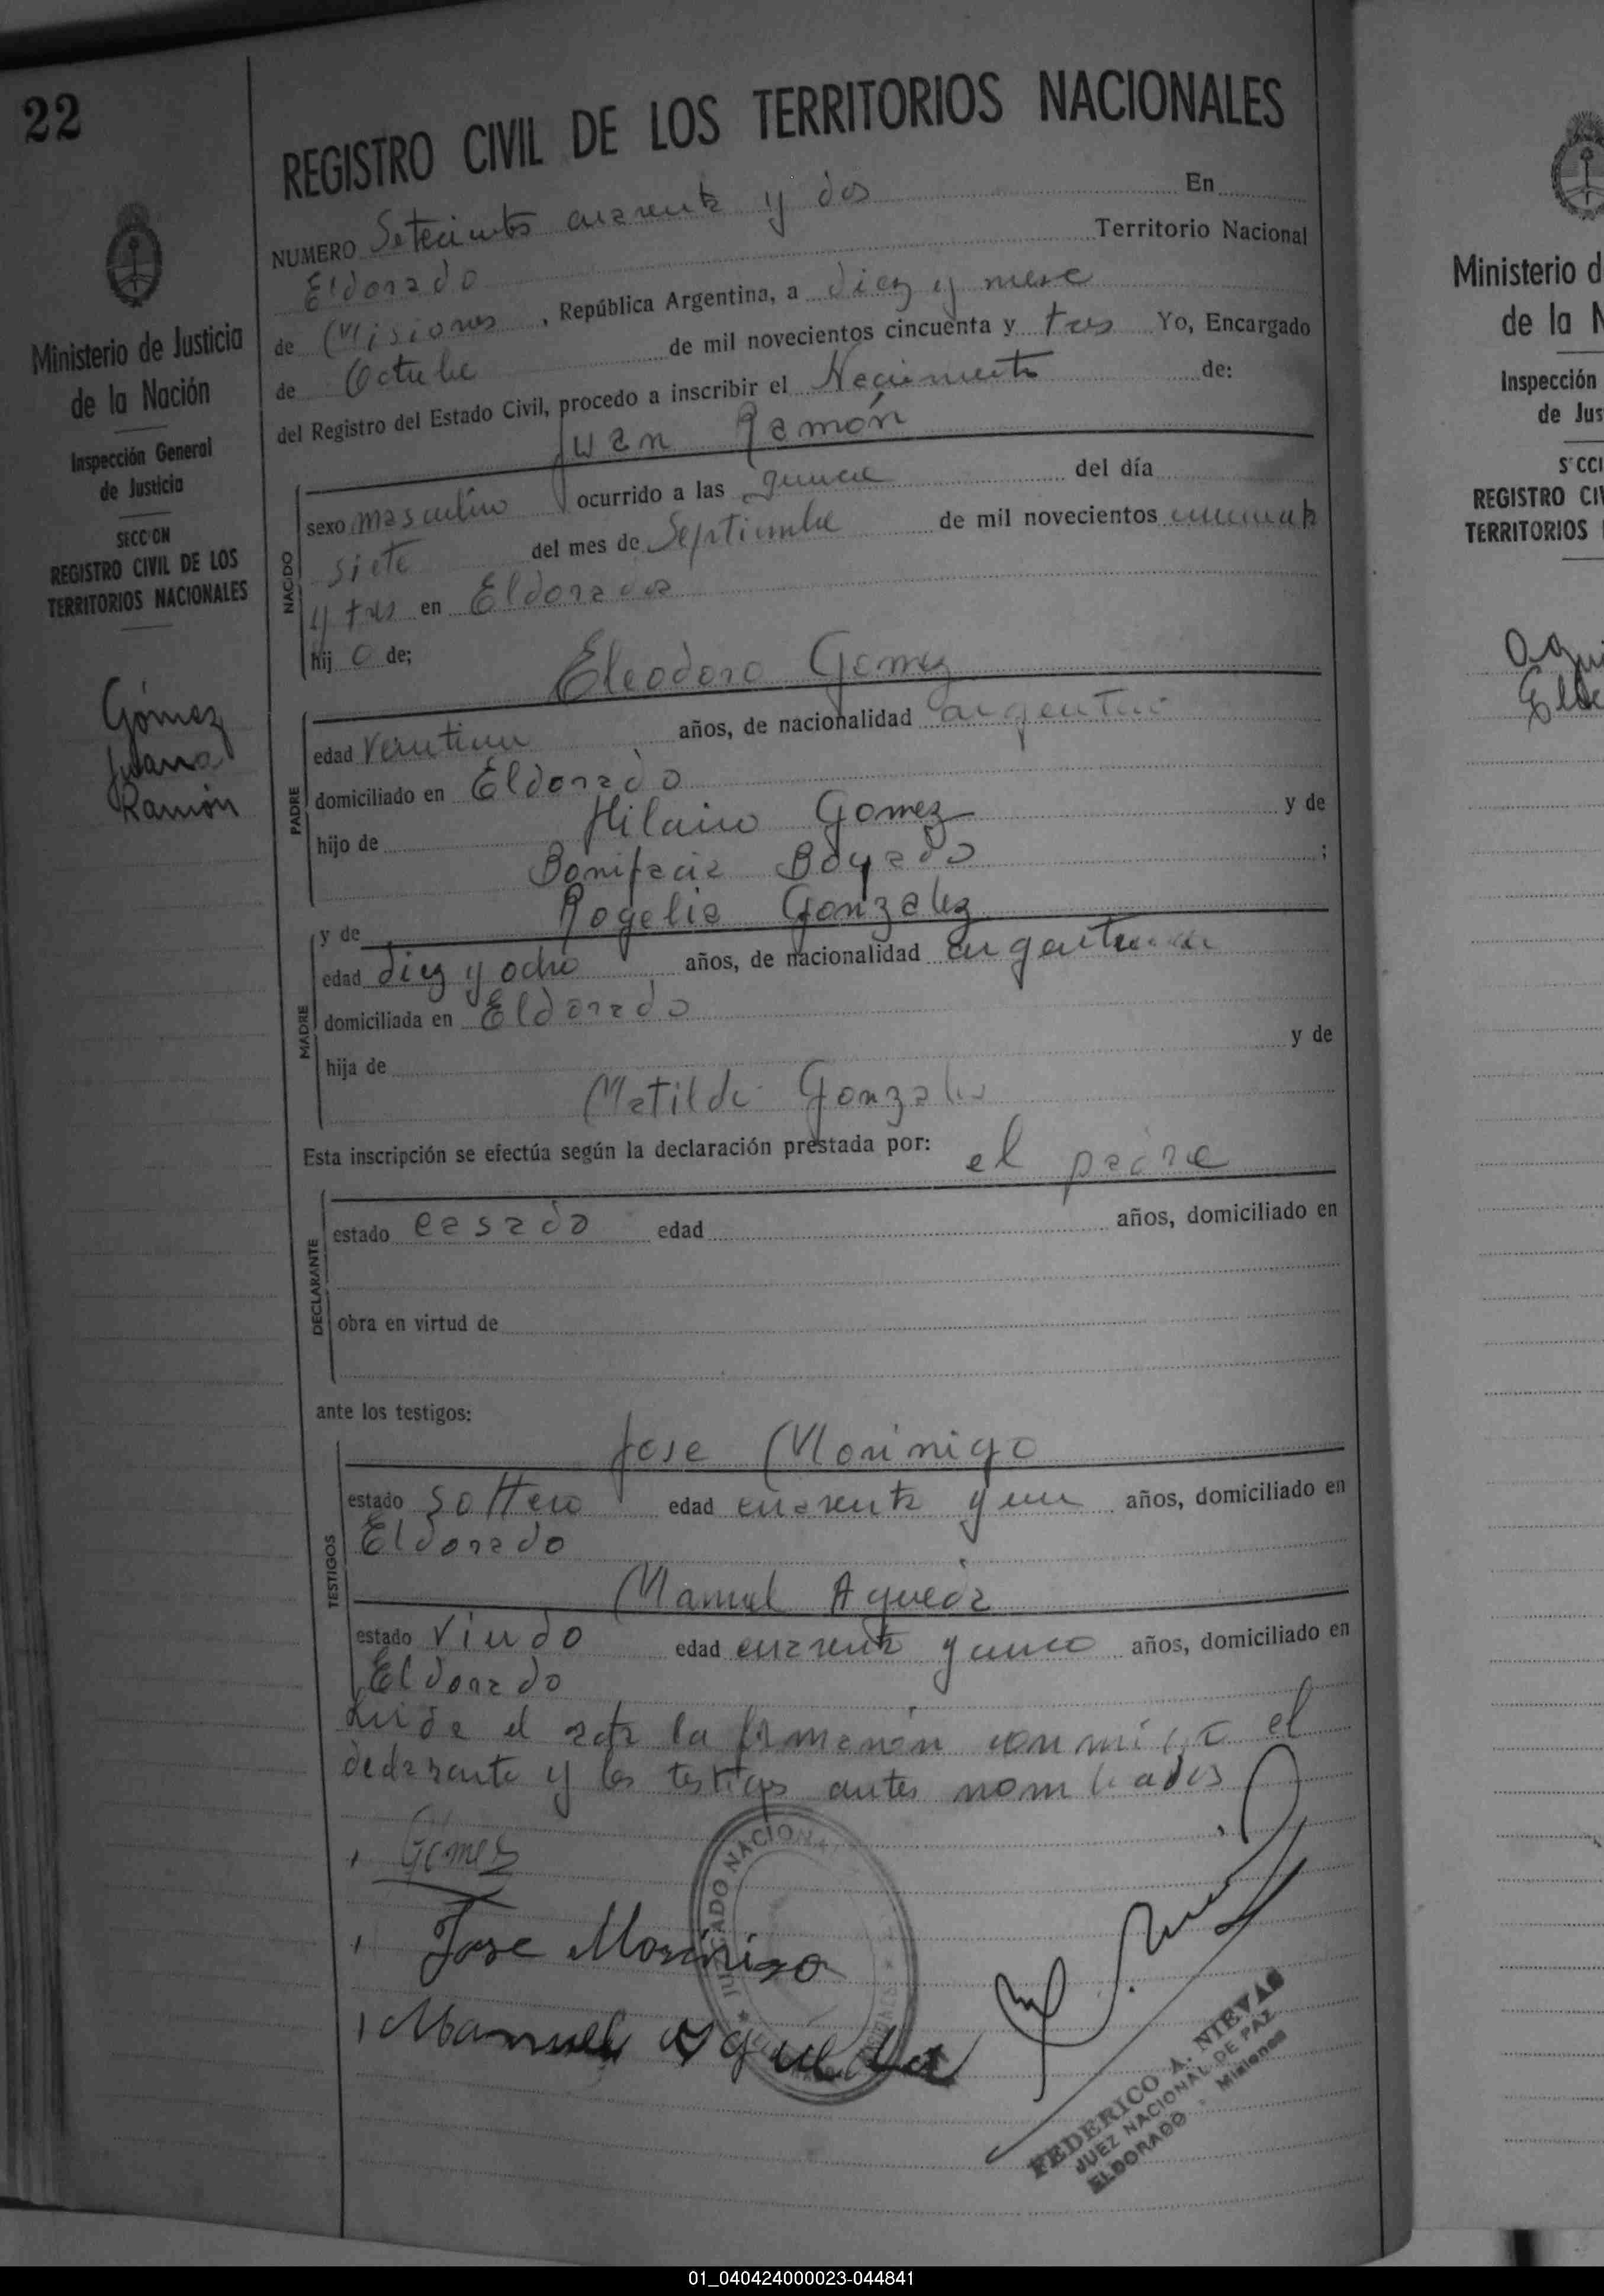 22
Ministerio de Justicia
de la Nación
Inspección General
de Justicia
SECCION
REGISTRO CIVIL DE LOS
TERRITORIOS NACIONALES
Gómez
Juan
Ramón
REGISTRO CIVIL DE LOS TERRITORIOS NACIONALES
NUMERO Setecientos cuarenta y dos En
Eldorado Territorio Nacional
de Misiones, República Argentina, a diez y nueve
de Octubre de mil novecientos cincuenta y tres Yo, Encargado
del Registro del Estado Civil, procedo a inscribir el Nacimiento de:
Juan Ramón
NACIDO
sexo masculino ocurrido a las quince del día
siete del mes de Septiembre de mil novecientos cincuenta
y tres en Eldorado
hijo de;
Eleodoro Gomez
PADRE
edad años, de nacionalidad argentino
domiciliado en Eldorado
hijo de Hilario Gomez y de
Bonifacia Bogado ;
y de Rogelia Gonzalez
MADRE
edad diez y ocho años, de nacionalidad argentina
domiciliada en Eldorado
hija de y de
Matilde Gonzalez
Esta inscripción se efectúa según la declaración prestada por: el padre
DECLARANTE
estado casado edad años, domiciliado en
obra en virtud de
ante los testigos:
Jose Morinigo
TESTIGOS
estado soltero edad cuarenta y un años, domiciliado en
Eldorado
Manuel Agueda
estado viudo edad cuarenta y cinco años, domiciliado en
Eldorado
Leida el acta la firmaron conmigo el
declarante y los testigos antes nombrados
Gómes
Jose Morinigo
Manuel Agueda
JUZGADO NACIONAL
FEDERICO A. NIEVAS
JUEZ NACIONAL DE PAZ
ELDORADO - Misiones
Ministerio d
de la N
Inspección
de Jus
S'CCI
REGISTRO CIV
TERRITORIOS
01_040424000023-044841